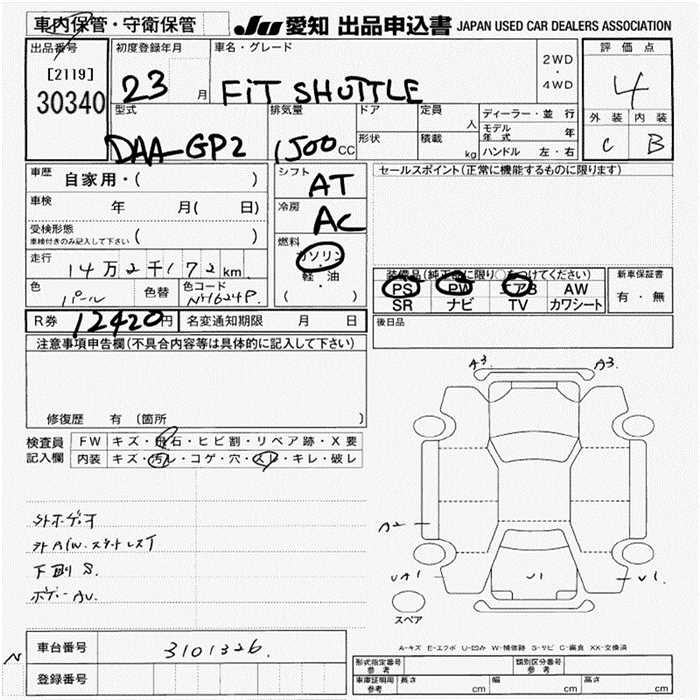 車内保管・守衛保管
JU 愛知 出品申込書 JAPAN USED CAR DEALERS ASSOCIATION
出品番号
[2119]
30340
初度登録年月
23 月
車名・グレード
FiT SHUTTLE
2WD
・
4WD
評価点
4
外装 内装
C B
型式
DAA-GP2
排気量
1500 CC
ドア
形状
定員 人
積載 kg
ディーラー・並行
モデル年式 年
ハンドル 左・右
車歴 自家用・( )
車検 年 月(日 )
受検形態
車検付きのみ記入して下さい ( )
走行 14万2千172km
色 パール 色替 色コード NH624P.
シフト AT
冷房 AC
燃料 ガソリン
・
軽・油
( )
セールスポイント(正常に機能するものに限ります)
装備品(純正品に限り○をつけてください)
PS PW エアB AW
SR ナビ TV カワシート
新車保証書
有・無
R券 12420円 名変通知期限 月 日
後日品
注意事項申告欄(不具合内容等は具体的に記入して下さい)
修復歴 有 〔箇所 〕
検査員
記入欄
FW キズ・飛石・ヒビ割・リペア跡・X要
内装 キズ・汚レ・コゲ・穴・スレ・キレ・破レ
下廻S.
A3 A3
A2
UA1 U1 U1
スペア
A-キズ E-エクボ U-凹み W-補修跡 S-サビ C-腐食 XX-交換済
N
車台番号 3101326.
登録番号
形式指定番号 参考
類別区分番号 参考
車庫証明用 参考 長さ cm 幅 cm 高さ cm